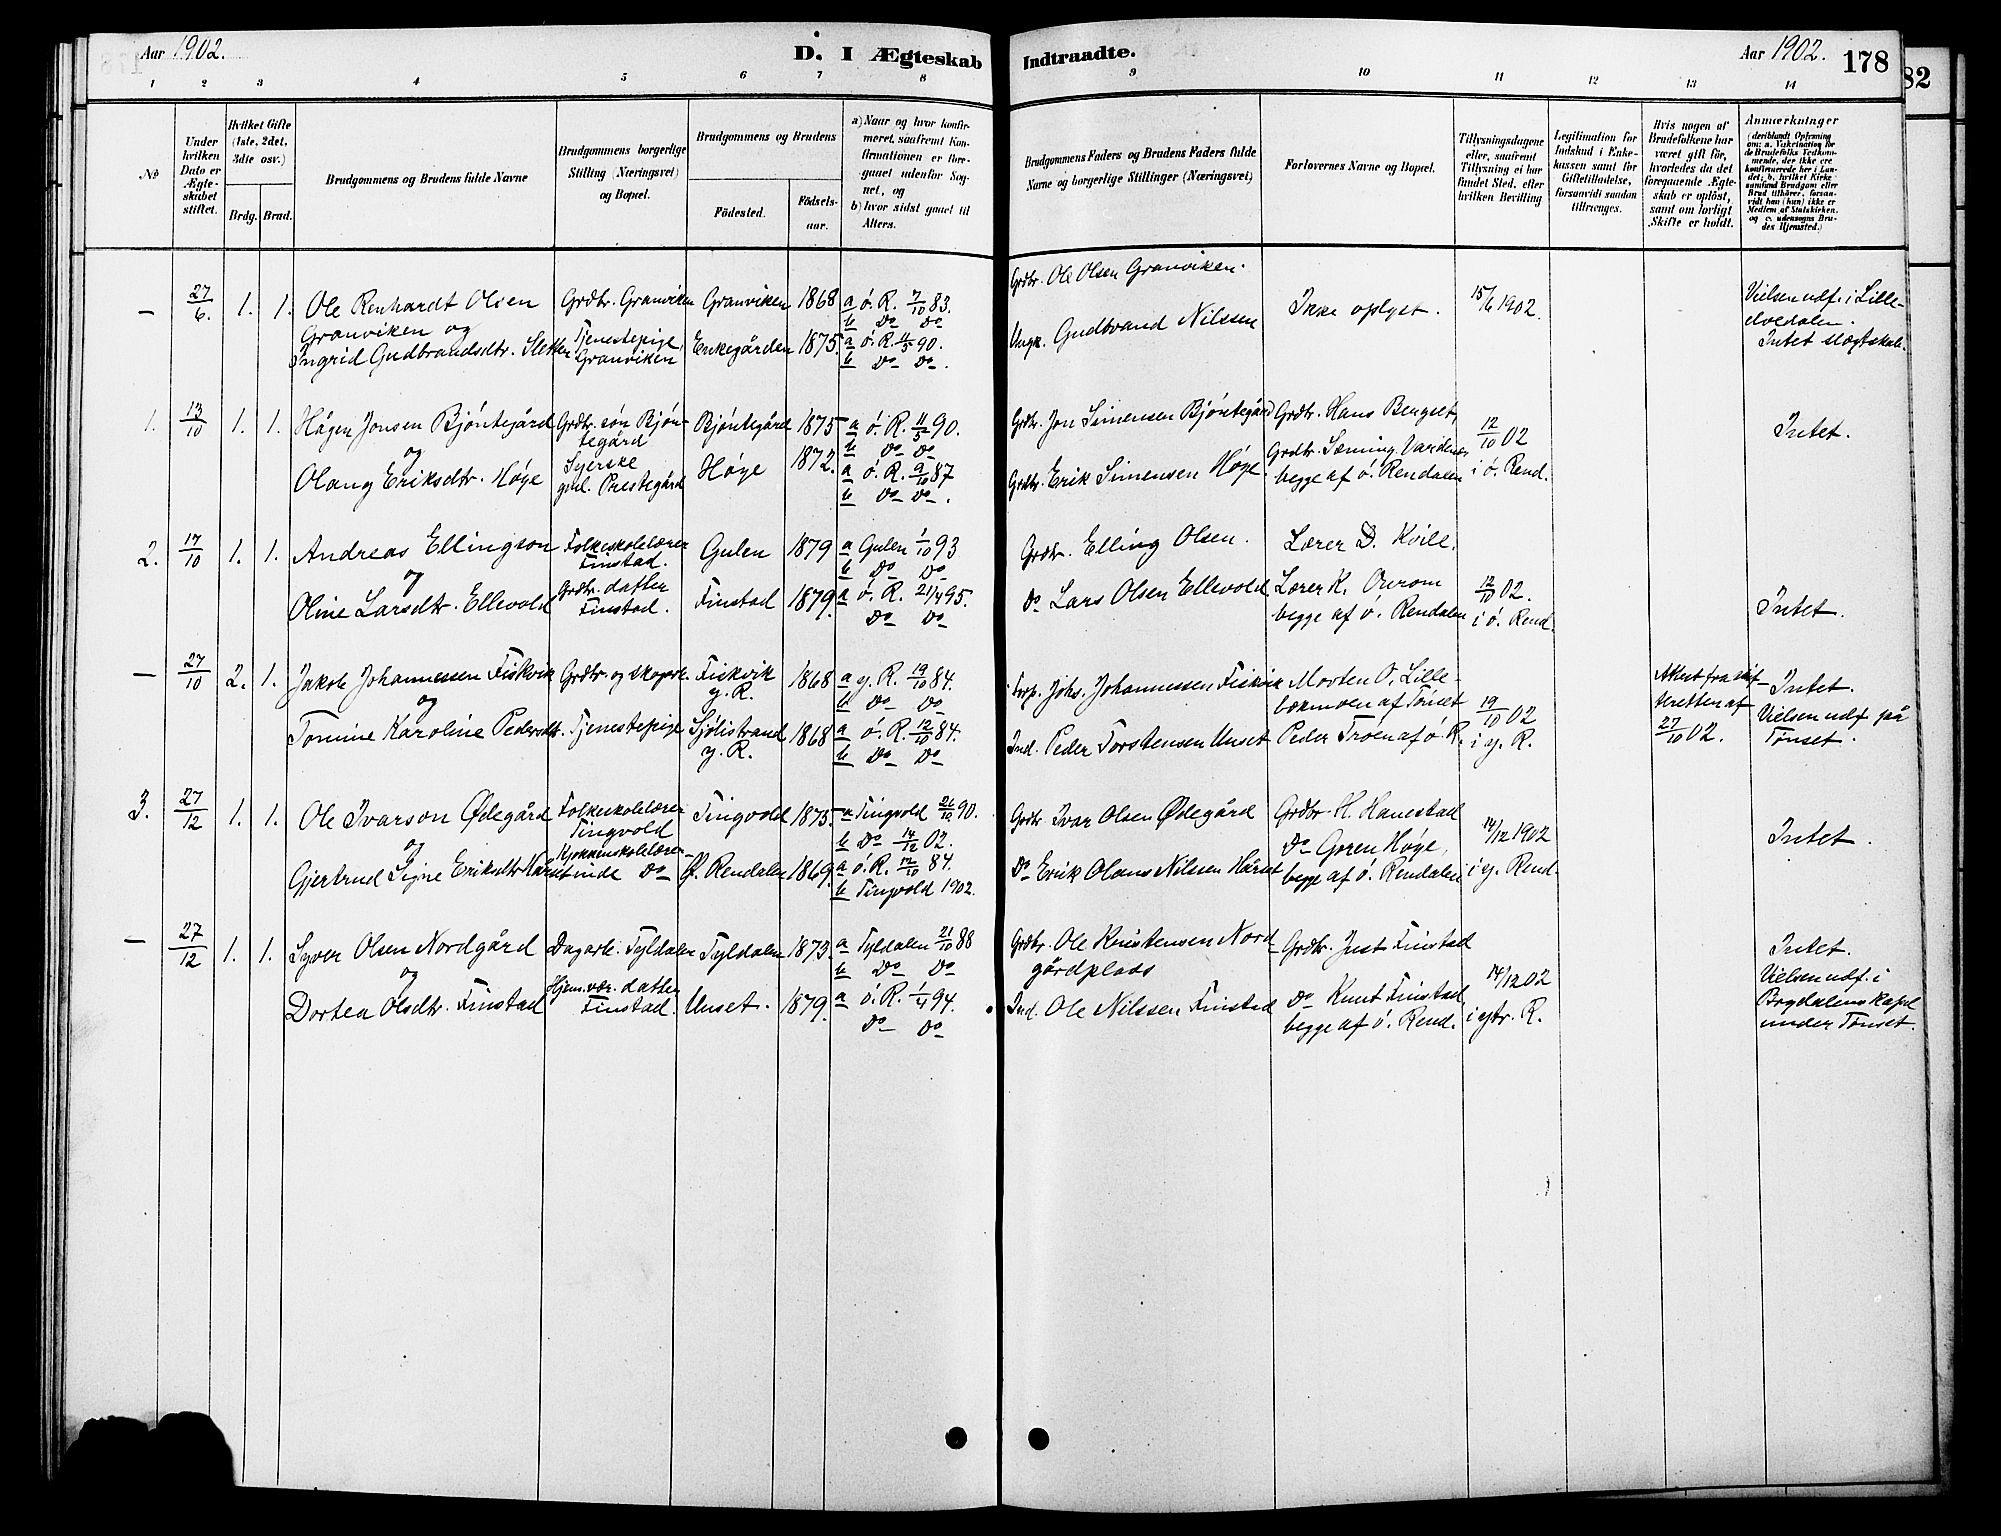 Aar 1902.
D. I Ægteskab Indtraadte.
Aar 1902. 178
82
1 2 3 4 5 6 7 8 9 10 11 12 13 14
No
Under hvilken Dato er Ægteskabet stiftet.
Hvilket Gifte (1ste, 2det, 3die osv.)
Brdg. Brud.
Brudgommens og Brudens fulde Navne
Brudgommens borgerlige Stilling (Næringsvei) og Bopæl.
Brudgommens og Brudens
Födested.
Födselsaar.
a) Naar og hvor konfirmeret, saafremt Konfirmationen er foregaaet udenfor Sognet, og
b) hvor sidst gaaet til Alters.
Brudgommens Faders og Brudens Faders fulde Navne og borgerlige Stillinger (Næringsvei)
Forlovernes Navne og Bopæl.
Tillysningsdagene eller, saafremt Tillysning ei har fundet Sted, efter hvilken Bevilling
Legitimation for Indskud i Enkekassen samt for Giftetilladelse, forsaavidt saadan tiltrænges.
Hvis nogen af Brudefolkene har været gift før, hvorledes da det foregaaende Ægteskab er opløst, samt om lovligt Skifte er holdt.
Anmærkninger (deriblandt Opførsing om: a. Vakcination for de Brudefolks Vedkommende, der ikke ere konfirmerede her i Landet; b. hvilket Kirkesamfund Brudgom eller Brud tilhører, forsaavidt han (hun) ikke er Medlem af Statskirken, og c. udensogns Brudes Hjemsted.)
— 27/6. 1. 1. Ole Renhardt Olsen Grdbr. Granviken Granviken 1868 a ö. R. 7/10 83.
Granviken og b Do Do
Ingrid Gudbrandsdtr. Sletten Tjenestepige, Granviken Enkegården 1875. a ö. R. 11/5 90.
b Do Do.
Grdbr. Ole Olsen Granviken.
Ungk. Gudbrand Nilssen
Ikke oplyst.
15/6 1902.
Vielsen udf. i Lille-
elvedalen.
Intet slægtskab.
1. 13/10 1. 1. Hågen Jonsen Bjöntegård Grdbr. sön Bjön- Bjöntegård 1875 a ö. R. 11/5 90.
og tegård b Do Do
Olaug Eriksdtr. Höye Syerske Höye 1872. a ö. R. 9/10 87
Prestegård b Do Do.
Grdbr. Jon Simensen Bjöntegård
Grdbr. Erik Simensen Höye.
Grdbr. Hans Bengset,
Grdbr. Sæming Vardenæs
begge af ö. Rendalen
12/10 02
i ö. Rend.
Intet.
2. 17/10 1. 1. Andreas Ellingson Folkeskolelærer Gulen 1879 a Gulen 1/10 93
og Finstad. b Do Do
Oline Larsdtr. Ellevold Grdbr. datter Finstad 1879. a ö. R. 21/4 95.
Finstad. Do Do
Grdbr. Elling Olsen.
Do Lars Olsen Ellevold
Lærer D. Kvile.
Lærer K. Overom
begge af ö. Rendalen
12/10 02.
i ö. Rend.
Intet.
— 27/10 2. 1. Jakob Johannessen Fiskvik Grdbr. og skogarb. Fiskvik 1868 a y. R. 19/10 84.
og y. R. b Do Do
Tomine Karoline Pedersdtr. Tjenestepige Sjölistrand 1868 a ö. R. 12/10 84.
y. R. b Do Do
Johs. Johannessen Fiskvik
Ind. Peder Torstensen Unset
Morten O. Lille-
bækmoen af Tönset
Peder Troen af ö. R.
19/10 02
i y. R.
Attest fra skif-
teretten af
27/10 02.
Intet.
Vielsen udf på
Tönset.
3. 27/12 1. 1. Ole Ivarson Ödegård Folkeskolelærer Tingvold 1875. a Tingvold 26/10 90.
og Tingvold b Do 14/12 02.
Gjertrud Signe Eriksdtr. Hårset Kjökkenskolelærer- Ö. Rendalen 1869. a ö. R. 12/10 84.
inde Do b Tingvold 1902.
Grdbr Ivar Olsen Ödegård
Do Erik Olaus Nilsen Hårset
Grdbr H. Hanestad
Do Goren Höye,
begge af ö. Rendalen
14/12 1902
i y. Rend.
Intet.
— 27/12 1. 1. Syver Olsen Nordgård Dagarb. Tyldalen Tyldalen 1873. a Tyldalen 21/10 88
og b Do Do
Dortea Olsdtr. Finstad Hjem. vær. datter Unset. 1879. a ö. R. 1/4 94.
Finstad. Do Do
Grdbr. Ole Kristensen Nord-
gårdplads
Ind. Ole Nilssen Finstad
Grdbr. Just Finstad
Do Knut Finstad,
begge af ö. Rend.
14/12 02
i ytr. R.
Intet.
Vielsen udf. i
Brydalens kapel
under Tönset.